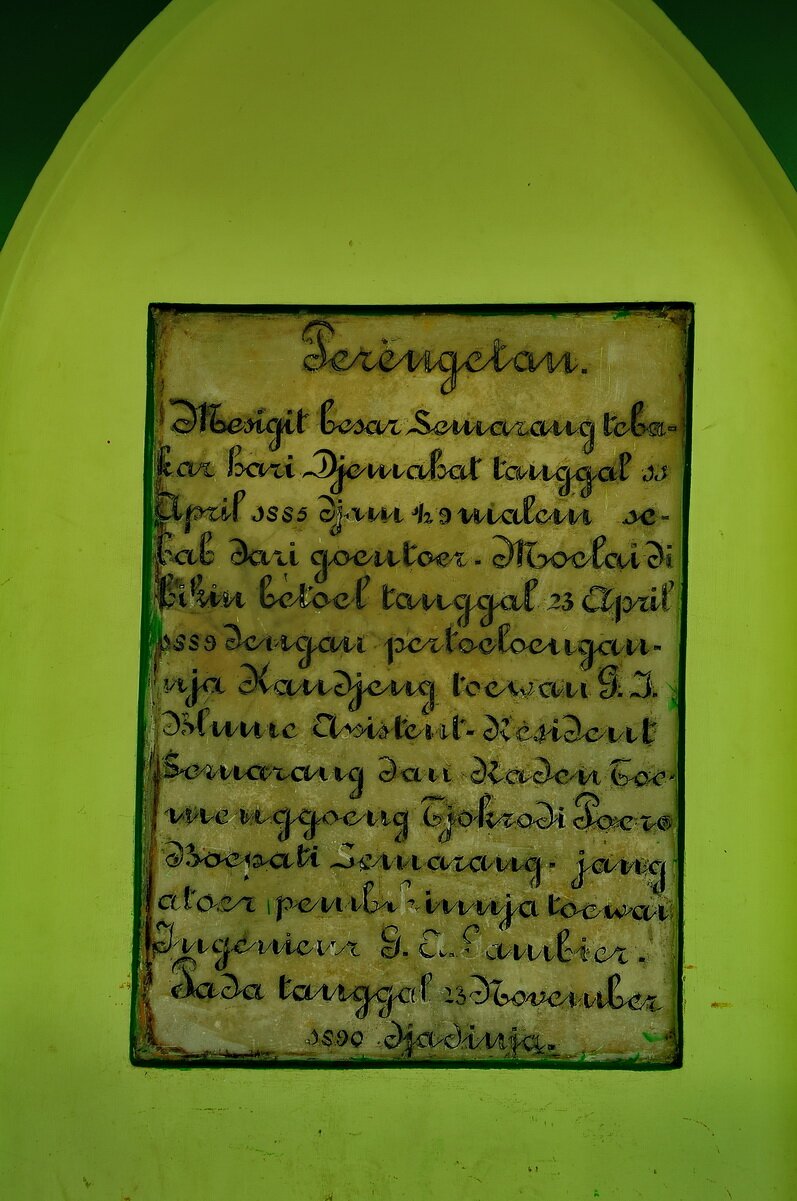 Perèngetan.
Mesigit besar Semarang teba-
kar hari Djemahat tanggal 11
April 1885 djam ½ 9 malem se-
bab dari goentoer. Moelai di
bikin betoel tanggal 23 April
1889 dengan pertoeloengan-
nja Kandjeng toewan G. I.
Blume Asistent-Resident
Semarang dan Raden Toe-
menggoeng Tjokrodi Poero
Boepati Semarang. jang
atoer pembikinnja toewan
Ingenieur G. A. Gambier.
Pada tanggal 23 November
1890 djadinja.